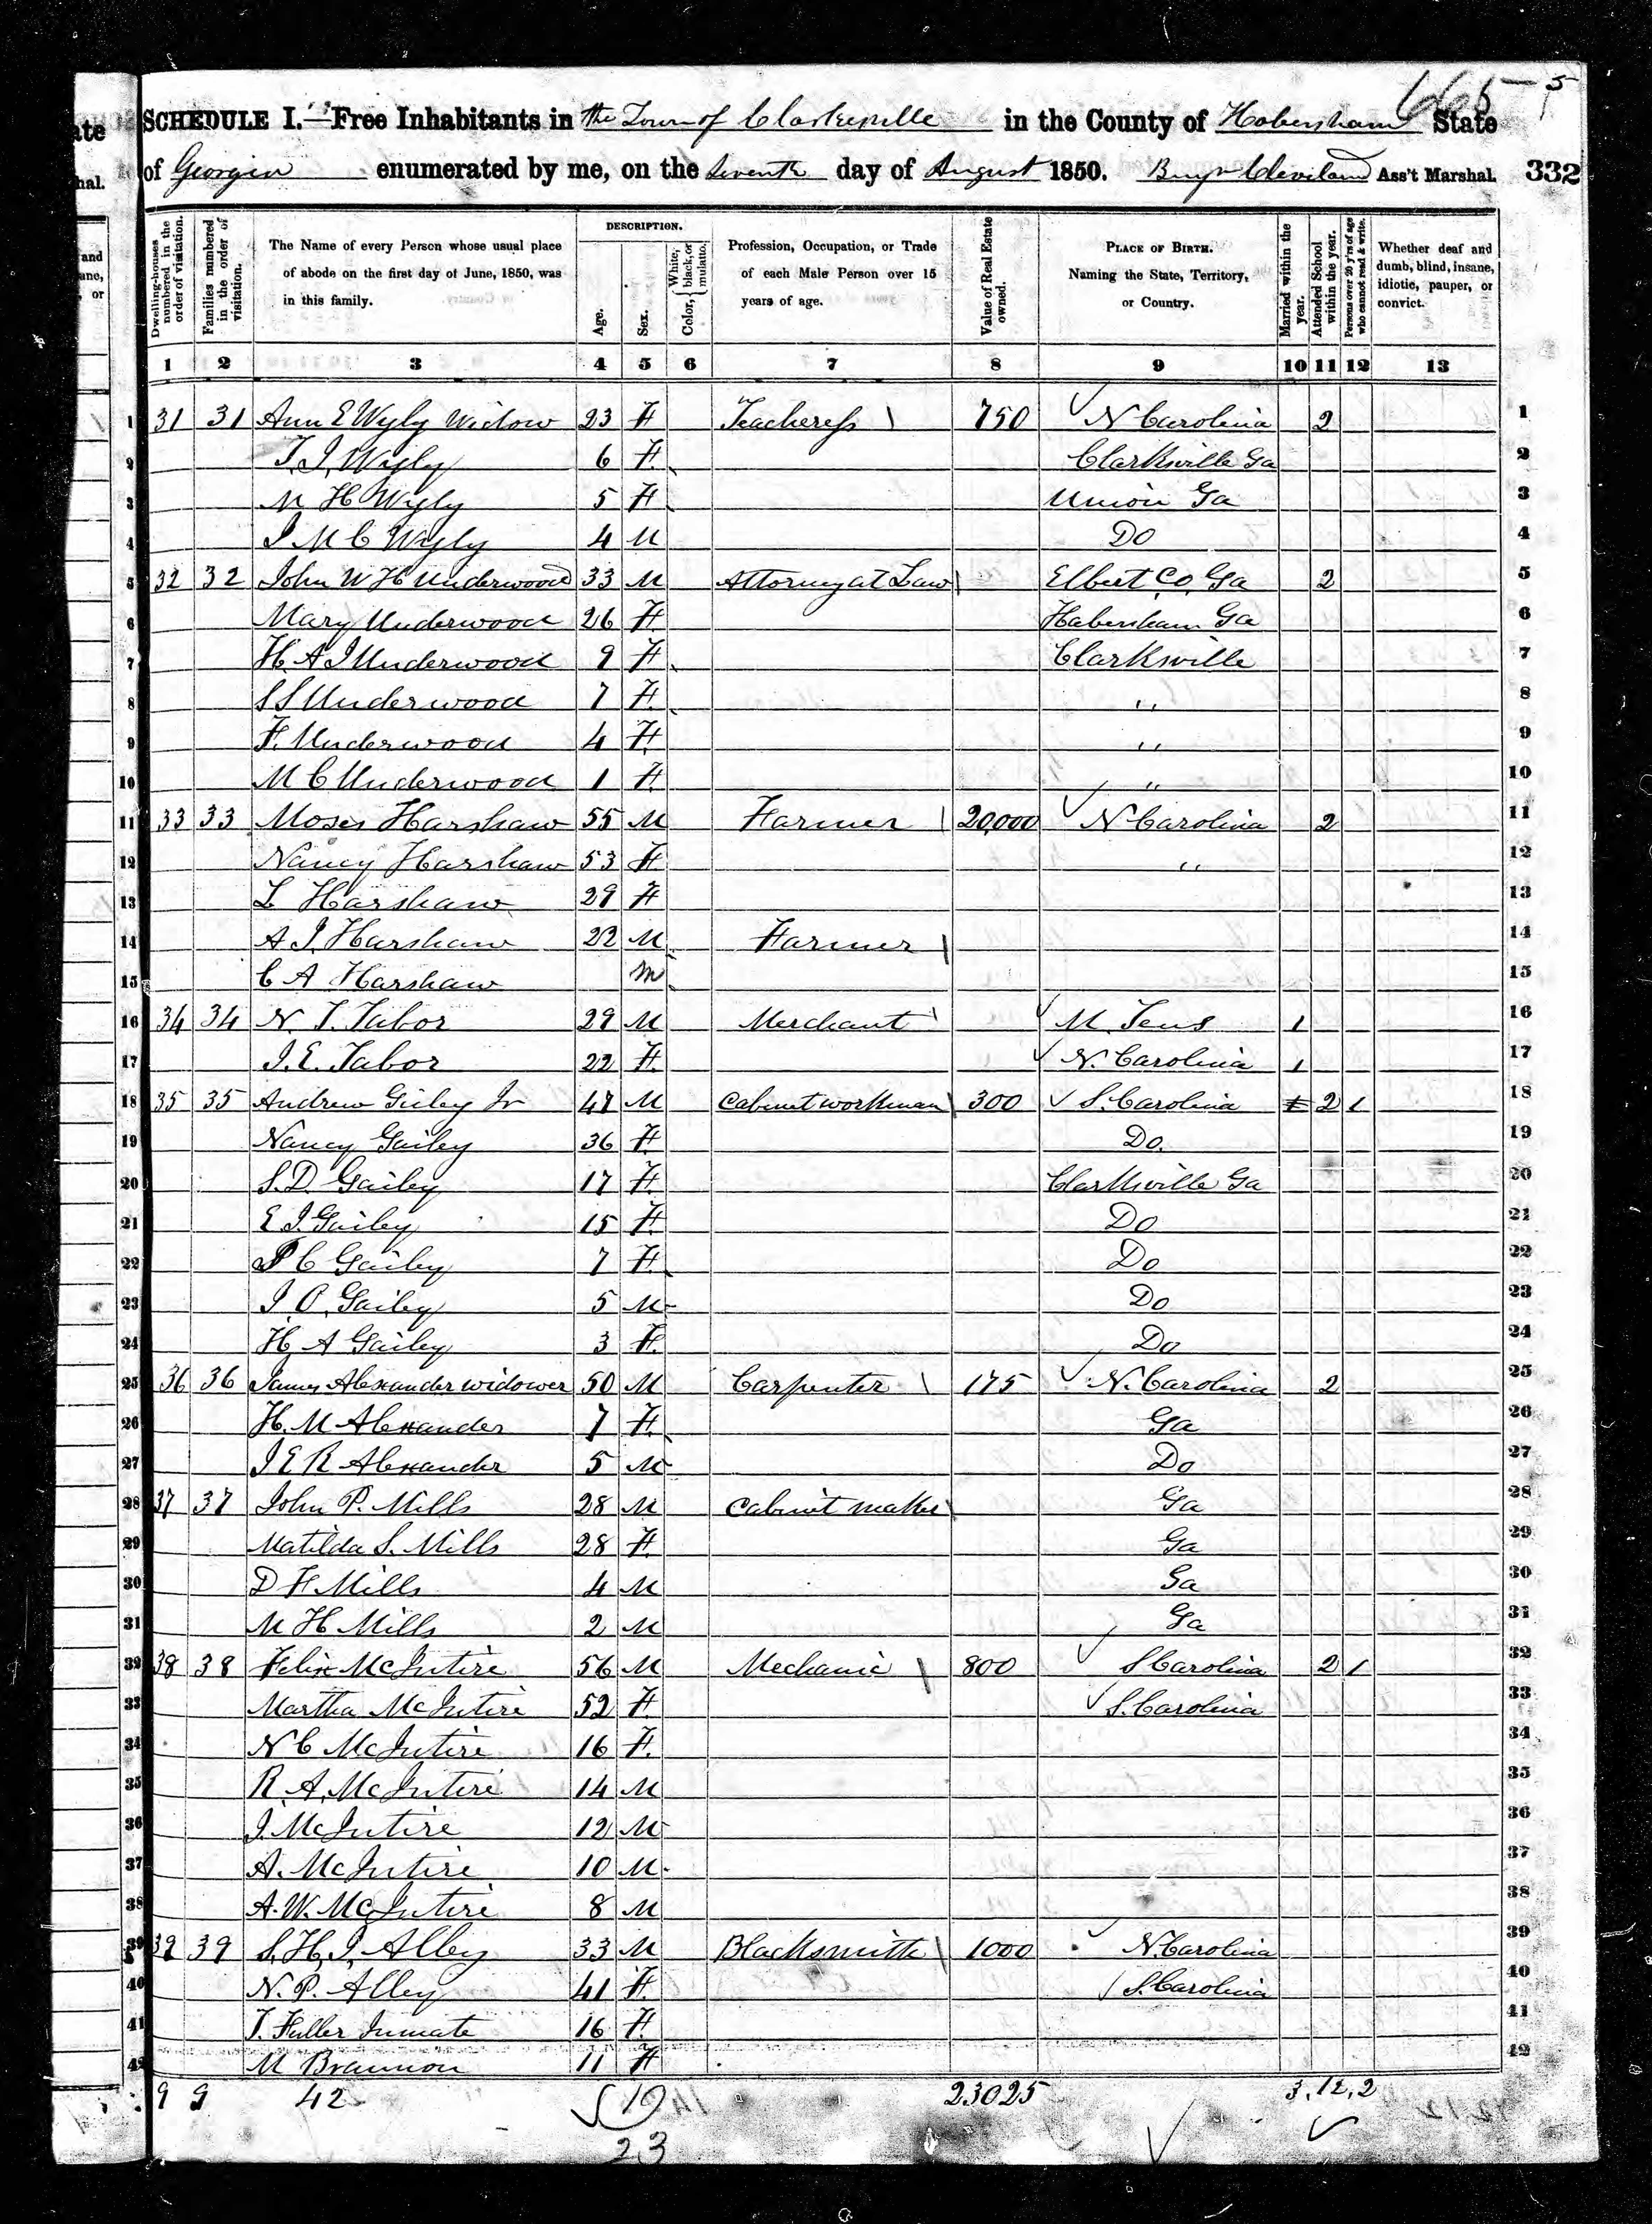 665 5
SCHEDULE I.—Free Inhabitants in the Town of Clarkesville in the County of Habersham State
of Georgia enumerated by me, on the Seventh day of August 1850. Benjn Cleveland Ass't Marshal. 332
Dwelling-houses numbered in the order of visitation.
Families numbered in the order of visitation.
The Name of every Person whose usual place of abode on the first day of June, 1850, was in this family.
DESCRIPTION.
Age.
Sex.
Color, { White, black, or mulatto.
Profession, Occupation, or Trade of each Male Person over 15 years of age.
Value of Real Estate owned.
PLACE OF BIRTH. Naming the State, Territory, or Country.
Married within the year.
Attended School within the year.
Persons over 20 y'rs of age who cannot read & write.
Whether deaf and dumb, blind, insane, idiotic, pauper, or convict.
1 2 3 4 5 6 7 8 9 10 11 12 13
1 31 31 Ann E Wyly Widow 23 F Teacheress 750 N Carolina 2 1
2 T. J. Wyly 6 F Clarksville Ga 2
3 M H Wyly 5 F Union Ga 3
4 J M C Wyly 4 M Do 4
5 32 32 John W H Underwood 33 M Attorney at Law Elbert Co. Ga 2 5
6 Mary Underwood 26 F Habersham Ga 6
7 H A J Underwood 9 F Clarksville 7
8 S S Underwood 7 F " 8
9 F. Underwood 4 F " 9
10 M C Underwood 1 F " 10
11 33 33 Moses Harshaw 55 M Farmer 20,000 N Carolina 2 11
12 Nancy Harshaw 53 F " 12
13 L Harshaw 29 F 13
14 A. J. Harshaw 22 M Farmer 14
15 C A Harshaw M 15
16 34 34 N. T. Tabor 29 M Merchant M. Tens 1 16
17 J. E. Tabor 22 F N. Carolina 1 17
18 35 35 Andrew Gieley Jr 47 M Cabinet workman 300 S. Carolina 2 1 18
19 Nancy Gailey 36 F Do. 19
20 S. D. Gailey 17 F Clarksville Ga 20
21 E J. Gailey 15 F Do 21
22 P C Gailey 7 F Do 22
23 J O. Gailey 5 M Do 23
24 H A Gailey 3 F Do 24
25 36 36 James Alexander widower 50 M Carpenter 175 N. Carolina 2 25
26 H. M Alexander 7 F Ga 26
27 J E R Alexander 5 M Do 27
28 37 37 John P. Mills 28 M Cabinet maker Ga 28
29 Matilda S. Mills 28 F Ga 29
30 D F Mills 4 M Ga 30
31 M H Mills 2 M Ga 31
32 38 38 Felix McIntire 56 M Mechanic 800 S Carolina 2 1 32
33 Martha McIntire 52 F S. Carolina 33
34 N C McIntire 16 F 34
35 R. A. McIntire 14 M 35
36 J. McIntire 12 M 36
37 A. McIntire 10 M 37
38 A. W. McIntire 8 M 38
39 39 39 S. H. J. Alley 33 M Blacksmith 1000 N. Carolina 39
40 N. P. Alley 41 F S. Carolina 40
41 T. Fuller Inmate 16 F 41
42 M Brannon 11 F 42
9 9 42 19 23025 3, 12, 2
23